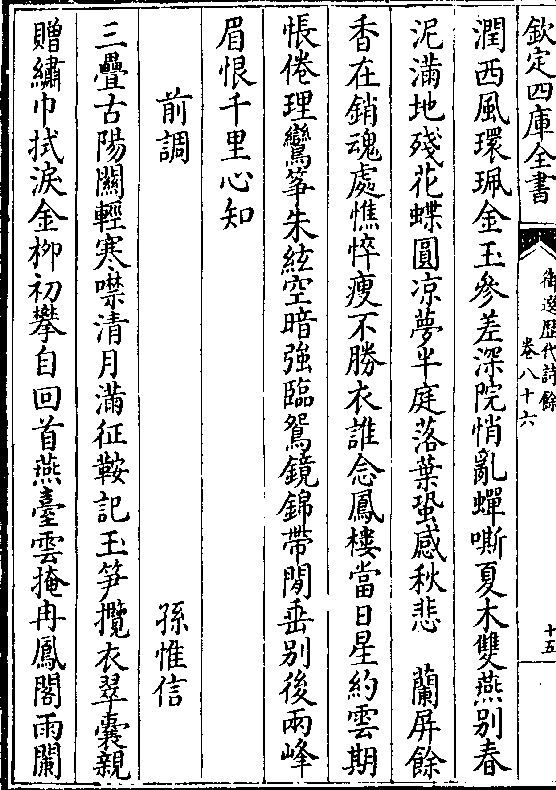 欽定四庫全書
御選歷代詩餘
卷八十六
十五
潤西風環珮金玉參差深院悄亂蟬嘶夏木雙燕别春
泥滿地殘花蝶圓凉夢半庭落葉蛩感秋悲　蘭屏餘
香在銷魂處憔悴瘦不勝衣誰念鳳樓當日星約雲期
悵倦理鸞筝朱絃空暗強臨鴛鏡錦帶閒垂别後兩峰
眉恨千里心知
前調　孫惟信
三疊古陽關輕寒噤清月滿征鞍記玉笋攬衣翠囊親
贈繡巾拭淚金柳初攀自回首燕臺雲掩冉鳳閣雨闌